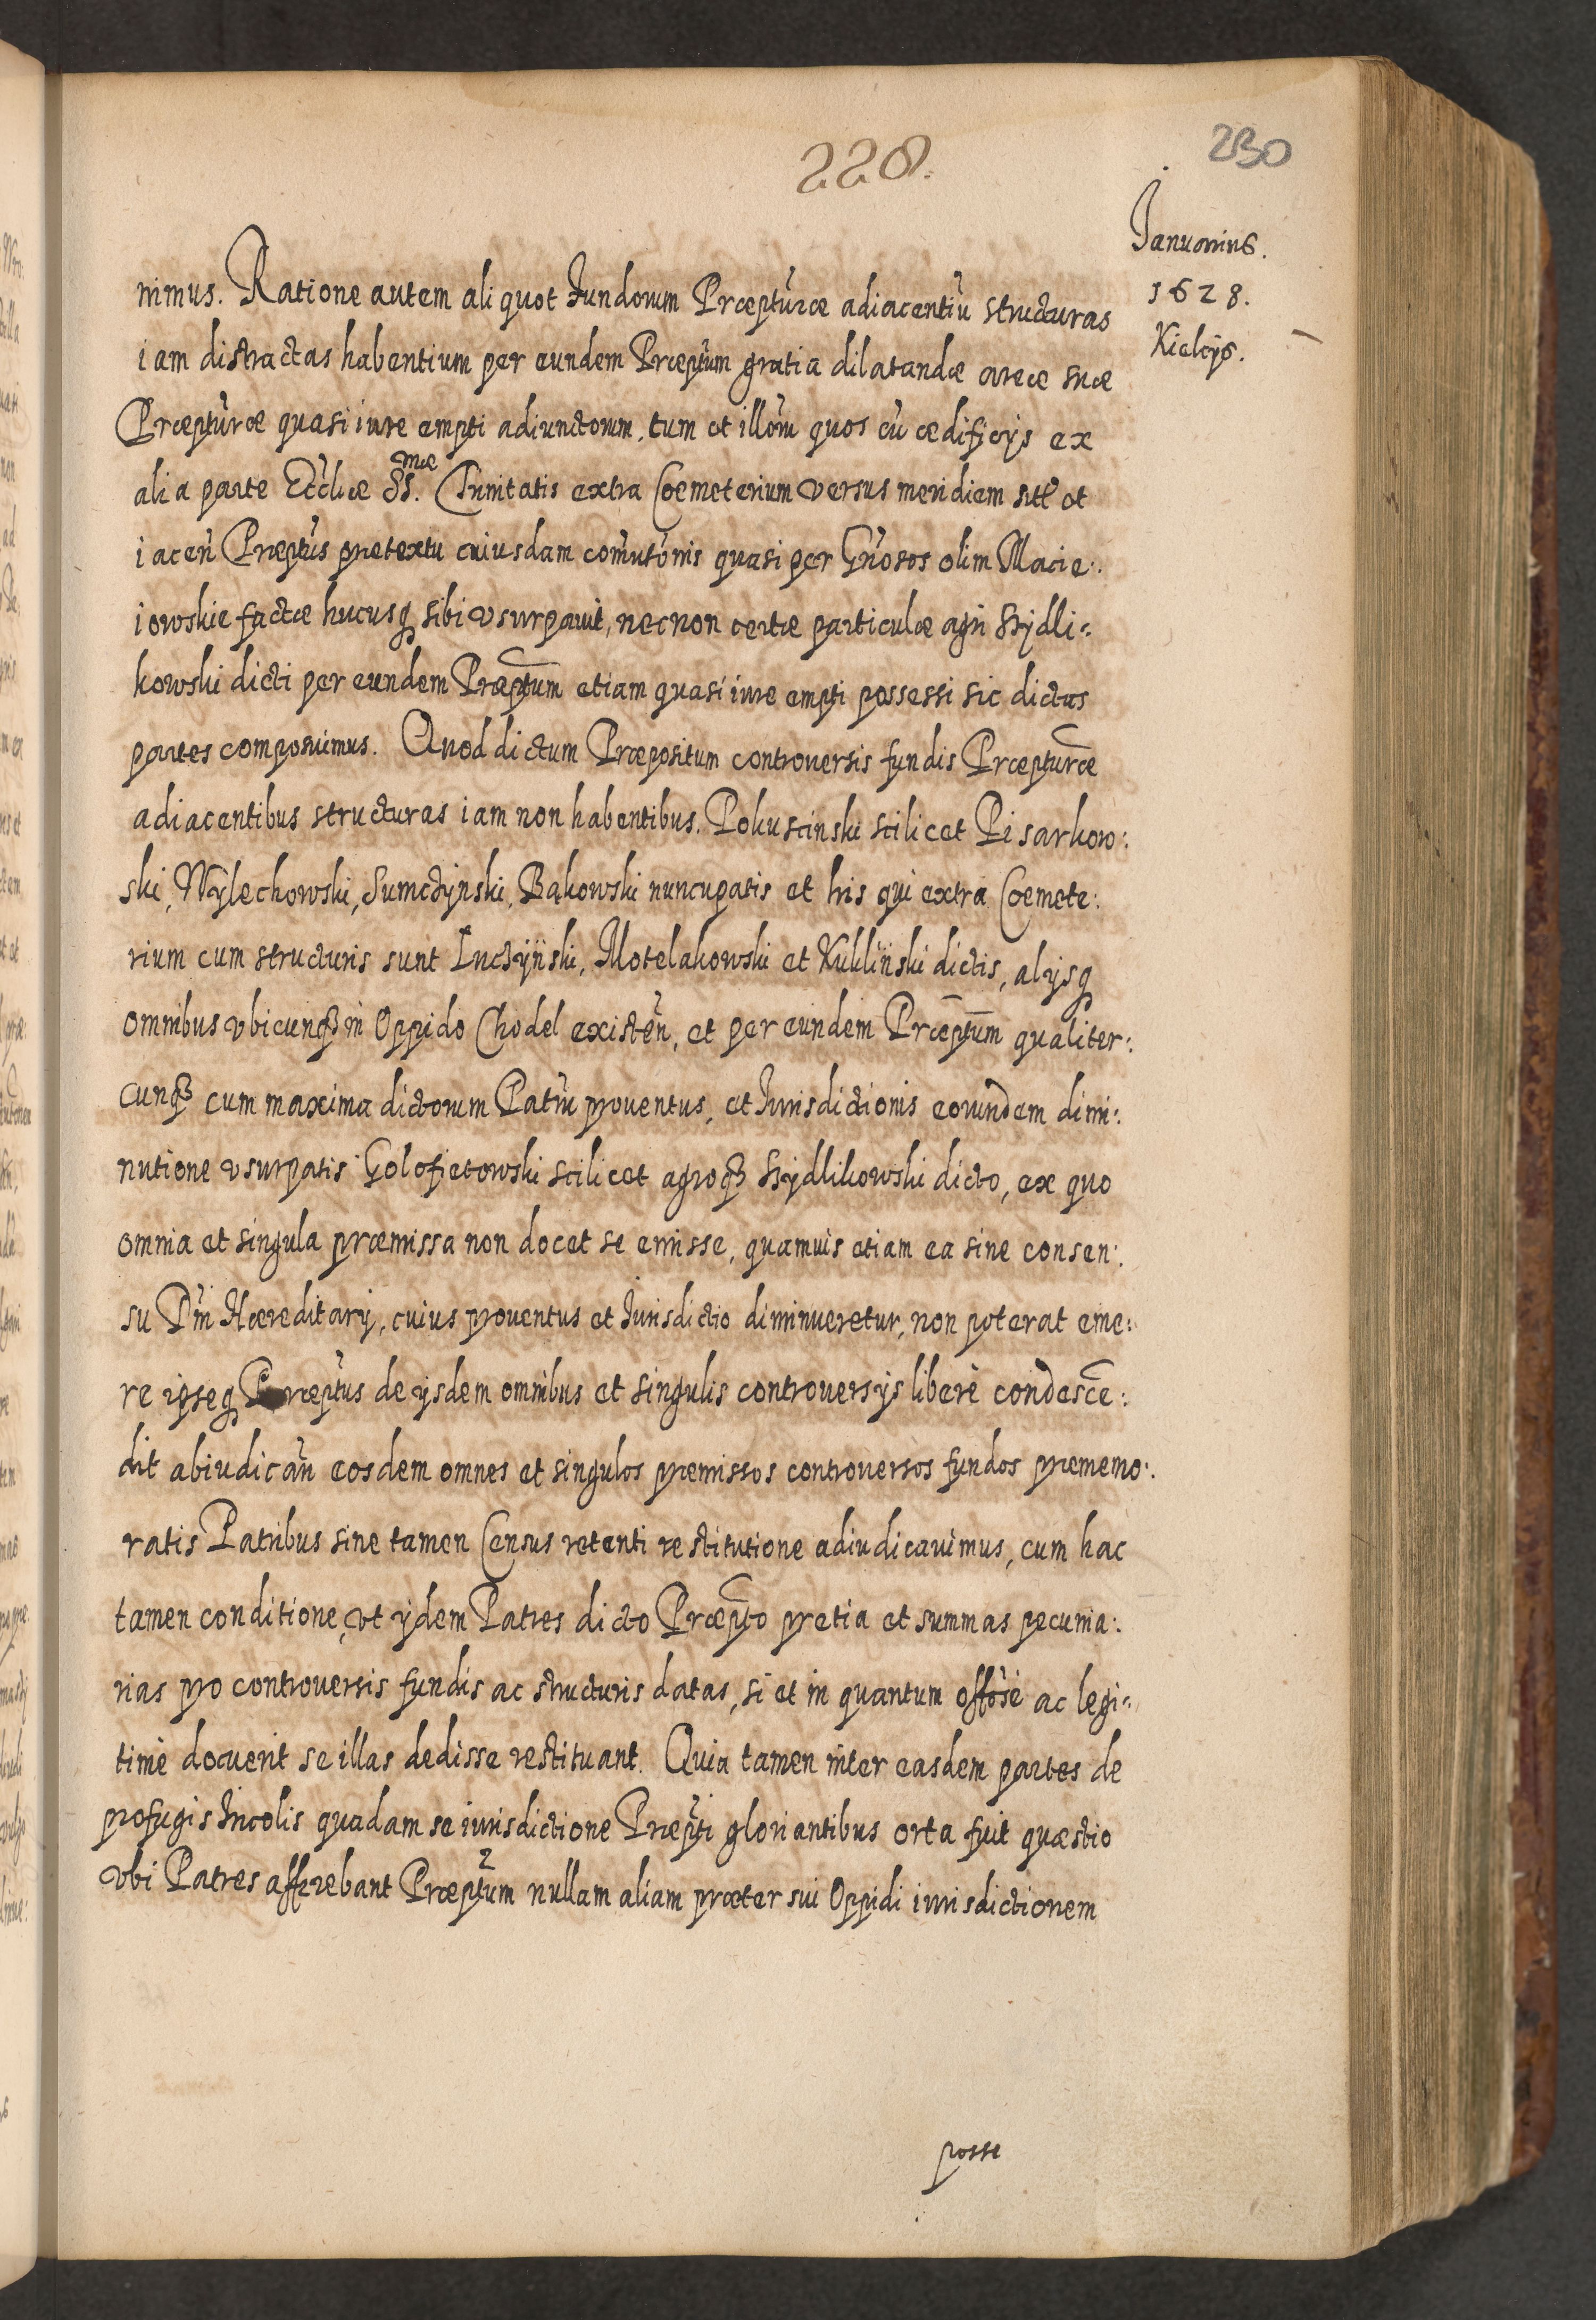 228.
230
Januarius.
1628.
Kielcijs.
nimus. Ratione autem aliquot fundorum Præpturæ adiacentiũ structuras
iam distractas habentium per eundem Præptum gratia dilatandæ areæ suæ
Præpturæ quasi iure empti adiunctorum, tum et illorũ quos cũ ædificijs ex
alia parte Ecclicæ SS.mæ Trinitatis extra Cœmeterium versus meridiem sitt et
iacen̄ Præptus pretextu cuiusdam comutõnis quasi per Gñosos olim Macie:
iowskie factæ hucusq sibi vsurpauit, necnon certæ particulæ agri Szydli=
kowski dicti per eundem Præptum etiam quasi iure empti possessi sic dictas
partes componimus. Quod dictum Præpositum controuersis fundis Præpturæ
adiacentibus structuras iam non habentibus. Pokuscinski scilicet Pisarkow:
ski, Wylechowski, Sumczÿnski, Bąkowski nuncupatis et his qui extra Cœmete:
rium cum structuris sunt Luczÿński, Motelakowski et Kukliński dictis, alijsq
omnibus vbicunq in Oppido Chodel existen̄, et per eundem Præptum qualiter:
cunq cum maxima dictorum Patrũ prouentus, et Iurisdictionis eorundem dimi:
nutione vsurpatis Golofietowski scilicet agroq Szydlikowski dicto, ex quo
omnia et singula præmissa non docet se emisse, quamuis etiam ea sine consen:
su Dñi Hæreditarij, cuius prouentus et Iurisdictio diminueretur, non poterat eme:
re ipseq Præptus de ijsdem omnibus et singulis controuersijs liberè condescē:
dit abiudican̄ eosdem omnes et singulos premissos controuersos fundos prememo:
ratis Patribus sine tamen Census retenti restitutione adiudicauimus, cum hac
tamen conditione, vt ijdem Patres dicto Præpto pretia et summas pecunia:
rias pro controuersis fundis ac structuris datas, si et in quantum offõsè ac legi=
timè docuerit se illas dedisse restituant. Quia tamen inter easdem partes de
profugis Incolis quadam se iurisdictione Præpti gloriantibus orta fuit quæstio
vbi Patres afferebant Præptum nullam aliam præter sui Oppidi iurisdictionem
posse